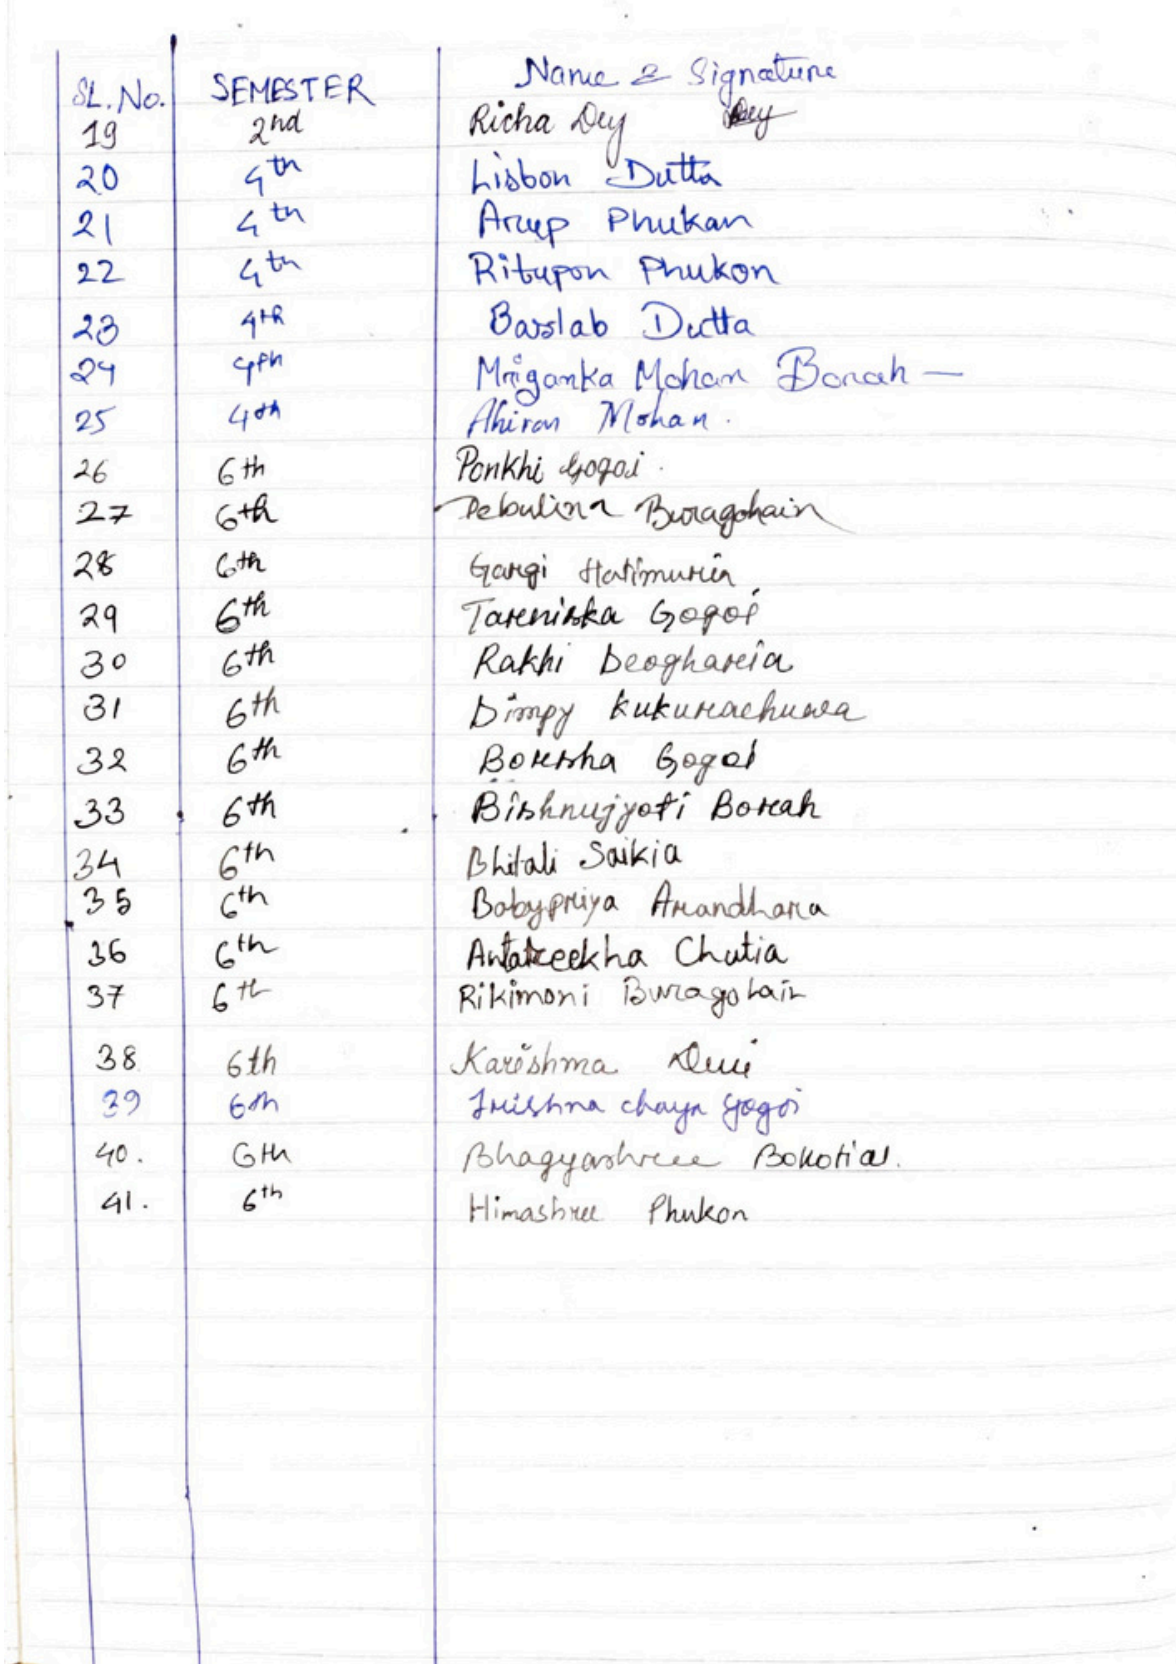 SL. No. SEMESTER Name & Signature
19 2nd Richa Dey Dey
20 4th Lisbon Dutta
21 4th Arup Phukan
22 4th Ritupon Phukon
23 4th Baslab Dutta
24 4th Mriganka Mohan Borah
25 4th Ahiran Mohan.
26 6th Ponkhi Gogoi.
27 6th Debulina Buragohain
28 6th Gargi Hatimuria
29 6th Tareniska Gogoi
30 6th Rakhi Deogharia
31 6th Dimpy Kukurachuwa
32 6th Borsha Gogoi
33 6th Bishnujyoti Borah
34 6th Bhitali Saikia
35 6th Bobypriya Arandhara
36 6th Chutia
37 6th Rikimoni Buragohain
38 6th Karishma Devi
39 6th chaya Gogoi
40. 6th Bhagyashree Bokotial.
41. 6th Himashree Phukon